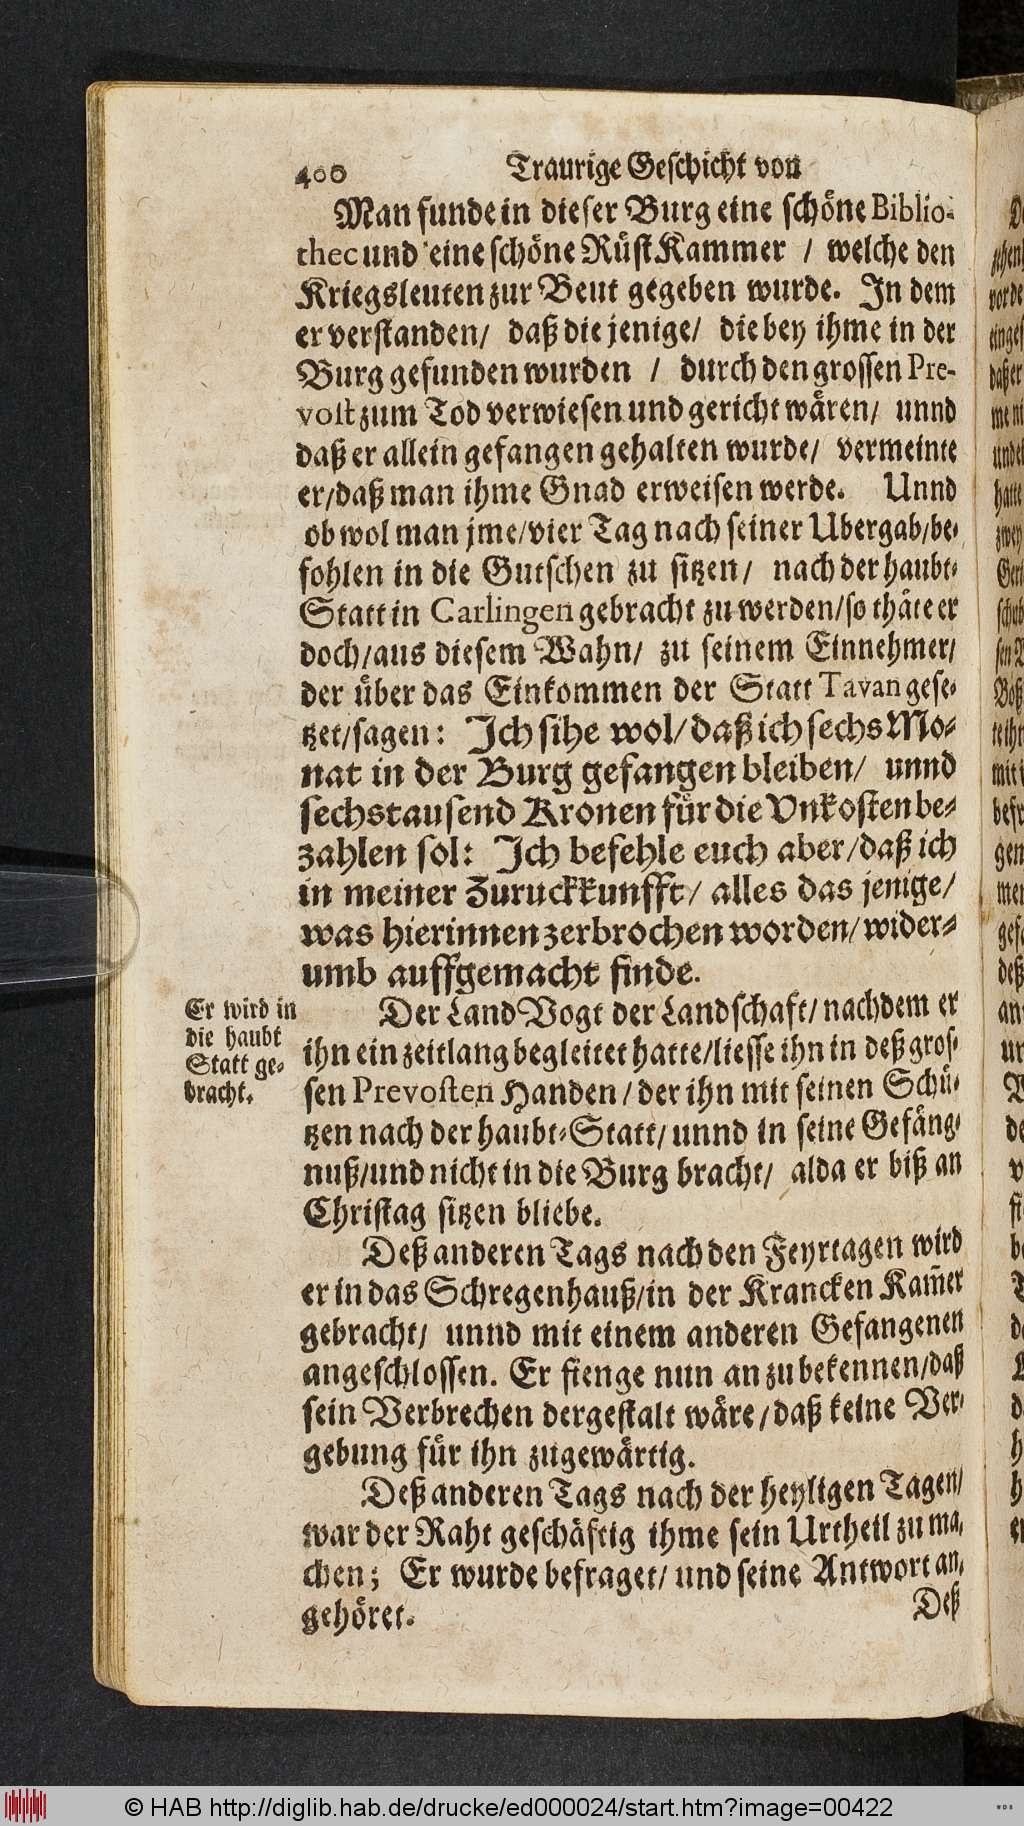 400 Traurige Geschicht von
Man funde in dieser Burg eine schöne Biblio-
thec und eine schöne Rüst Kammer / welche den
Kriegsleuten zur Beut gegeben wurde. In dem
er verstanden/ daß die jenige/ die bey ihme in der
Burg gefunden wurden / durch den grossen Pre-
vost zum Tod verwiesen und gericht wären/ unnd
daß er allein gefangen gehalten wurde/ vermeinte
er/daß man ihme Gnad erweisen werde. Unnd
ob wol man jme/vier Tag nach seiner Ubergab/be-
fohlen in die Gutschen zu sitzen/ nach der haubt-
Statt in Carlingen gebracht zu werden/so thäte er
doch/aus diesem Wahn/ zu seinem Einnehmer/
der über das Einkommen der Statt Tavan gese-
tzet/sagen: Ich sihe wol/daß ich sechs Mo-
nat in der Burg gefangen bleiben/ unnd
sechstausend Kronen für die Vnkosten be-
zahlen sol: Ich befehle euch aber/daß ich
in meiner Zuruckkunfft/ alles das jenige/
was hierinnen zerbrochen worden/wider-
umb auffgemacht finde.
Er wird in
die haubt
Statt ge-
bracht.
Der Land Vogt der Landschaft/nachdem er
ihn ein zeitlang begleitet hatte/liesse ihn in deß gros-
sen Prevosten Handen/der ihn mit seinen Schü-
tzen nach der haubt-Statt/unnd in seine Gefäng-
nuß/und nicht in die Burg bracht/ alda er biß an
Christag sitzen bliebe.
Deß anderen Tags nach den Feyrtagen wird
er in das Schregenhauß/in der Krancken Kam̅er
gebracht/ unnd mit einem anderen Gefangenen
angeschlossen. Er fienge nun an zu bekennen/daß
sein Verbrechen dergestalt wäre/daß keine Ver-
gebung für ihn zugewärtig.
Deß anderen Tags nach der heyligen Tagen/
war der Raht geschäftig ihme sein Urtheil zu ma-
chen; Er wurde befraget/und seine Antwort an-
gehöret.
Deß
© HAB http://diglib.hab.de/drucke/ed000024/start.htm?image=00422